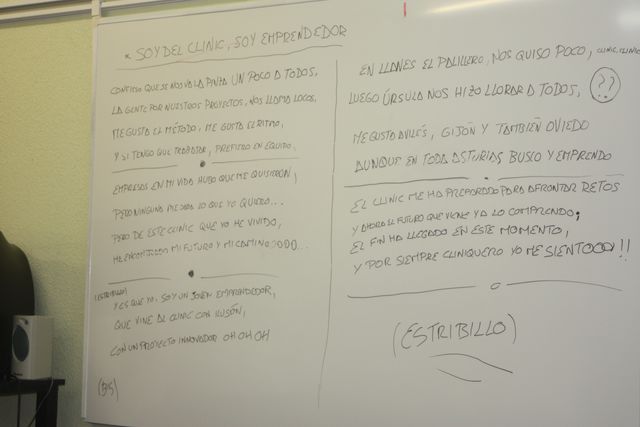 * SOY DEL CLINIC, SOY EMPRENDEDOR
CONFIESO QUE SE NOS VA LA PINZA UN POCO A TODOS,
LA GENTE POR NUESTROS PROYECTOS, NOS LLAMA LOCOS,
ME GUSTA EL MÉTODO, ME GUSTA EL RITMO,
Y SI TENGO QUE TRABAJAR, PREFIERO EN EQUIPO.
EMPRESAS EN MI VIDA HUBO QUE ME QUISIERON,
PERO NINGUNA ME DABA LO QUE YO QUIERO...
PERO DE ESTE CLINIC QUE YO HE VIVIDO,
HE ENCONTRADO MI FUTURO Y MI CAMINO OOO...
(ESTRIBILLO)
Y ES QUE YO, SOY UN JOVEN EMPRENDEDOR,
QUE VINE AL CLINIC CON ILUSÓN,
CON UN PROYECTO INNOVADOR OH OH OH
(BIS)
EN LLANES EL PALILLERO, NOS QUISO POCO, CLINIC, CLINIC
LUEGO ÚRSULA NOS HIZO LLORAR A TODOS, ??
ME GUSTA AVILÉS, GIJÓN Y TAMBIÉN OVIEDO
AUNQUE EN TODA ASTURIAS BUSCO Y EMPRENDO
EL CLINIC ME HA PREPARADO PARA AFRONTAR RETOS
Y AHORA EL FUTURO QUE VIENE YA LO COMPRENDO;
EL FIN HA LLEGADO EN ESTE MOMENTO,
Y POR SIEMPRE CLINIQUERO YO ME SIENTOOOO!!!
(ESTRIBILLO)